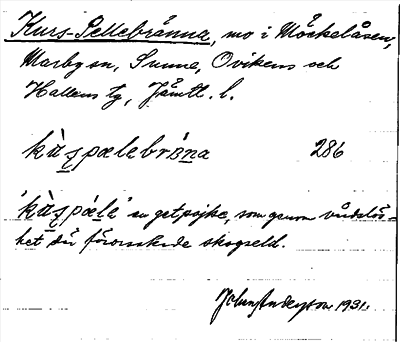 Kurs-Pellebränna, mo i Möckelåsen,
Marby sn, Sunne, Ovikens och
Hallens tg, Jämtl. l.
kùs̩pælebrǿna 286
'kùs̩pǽlé' en getpojke, som genom vårdslös-
het där förorsakade skogseld.
1931.